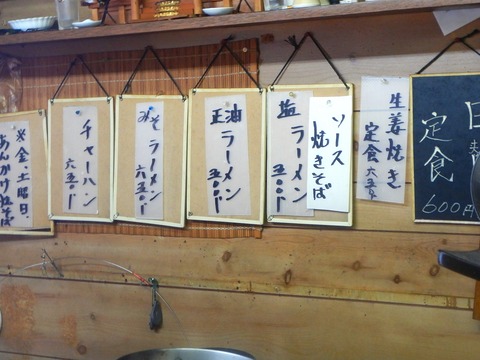 日替
定食
600円
生姜焼き
定食 六五〇
ソース
焼きそば
塩ラーメン
五〇〇
正油ラーメン
五〇〇
みそラーメン
六五〇
チャーハン
六五〇
※金、土曜日、
あんかけ塩そば